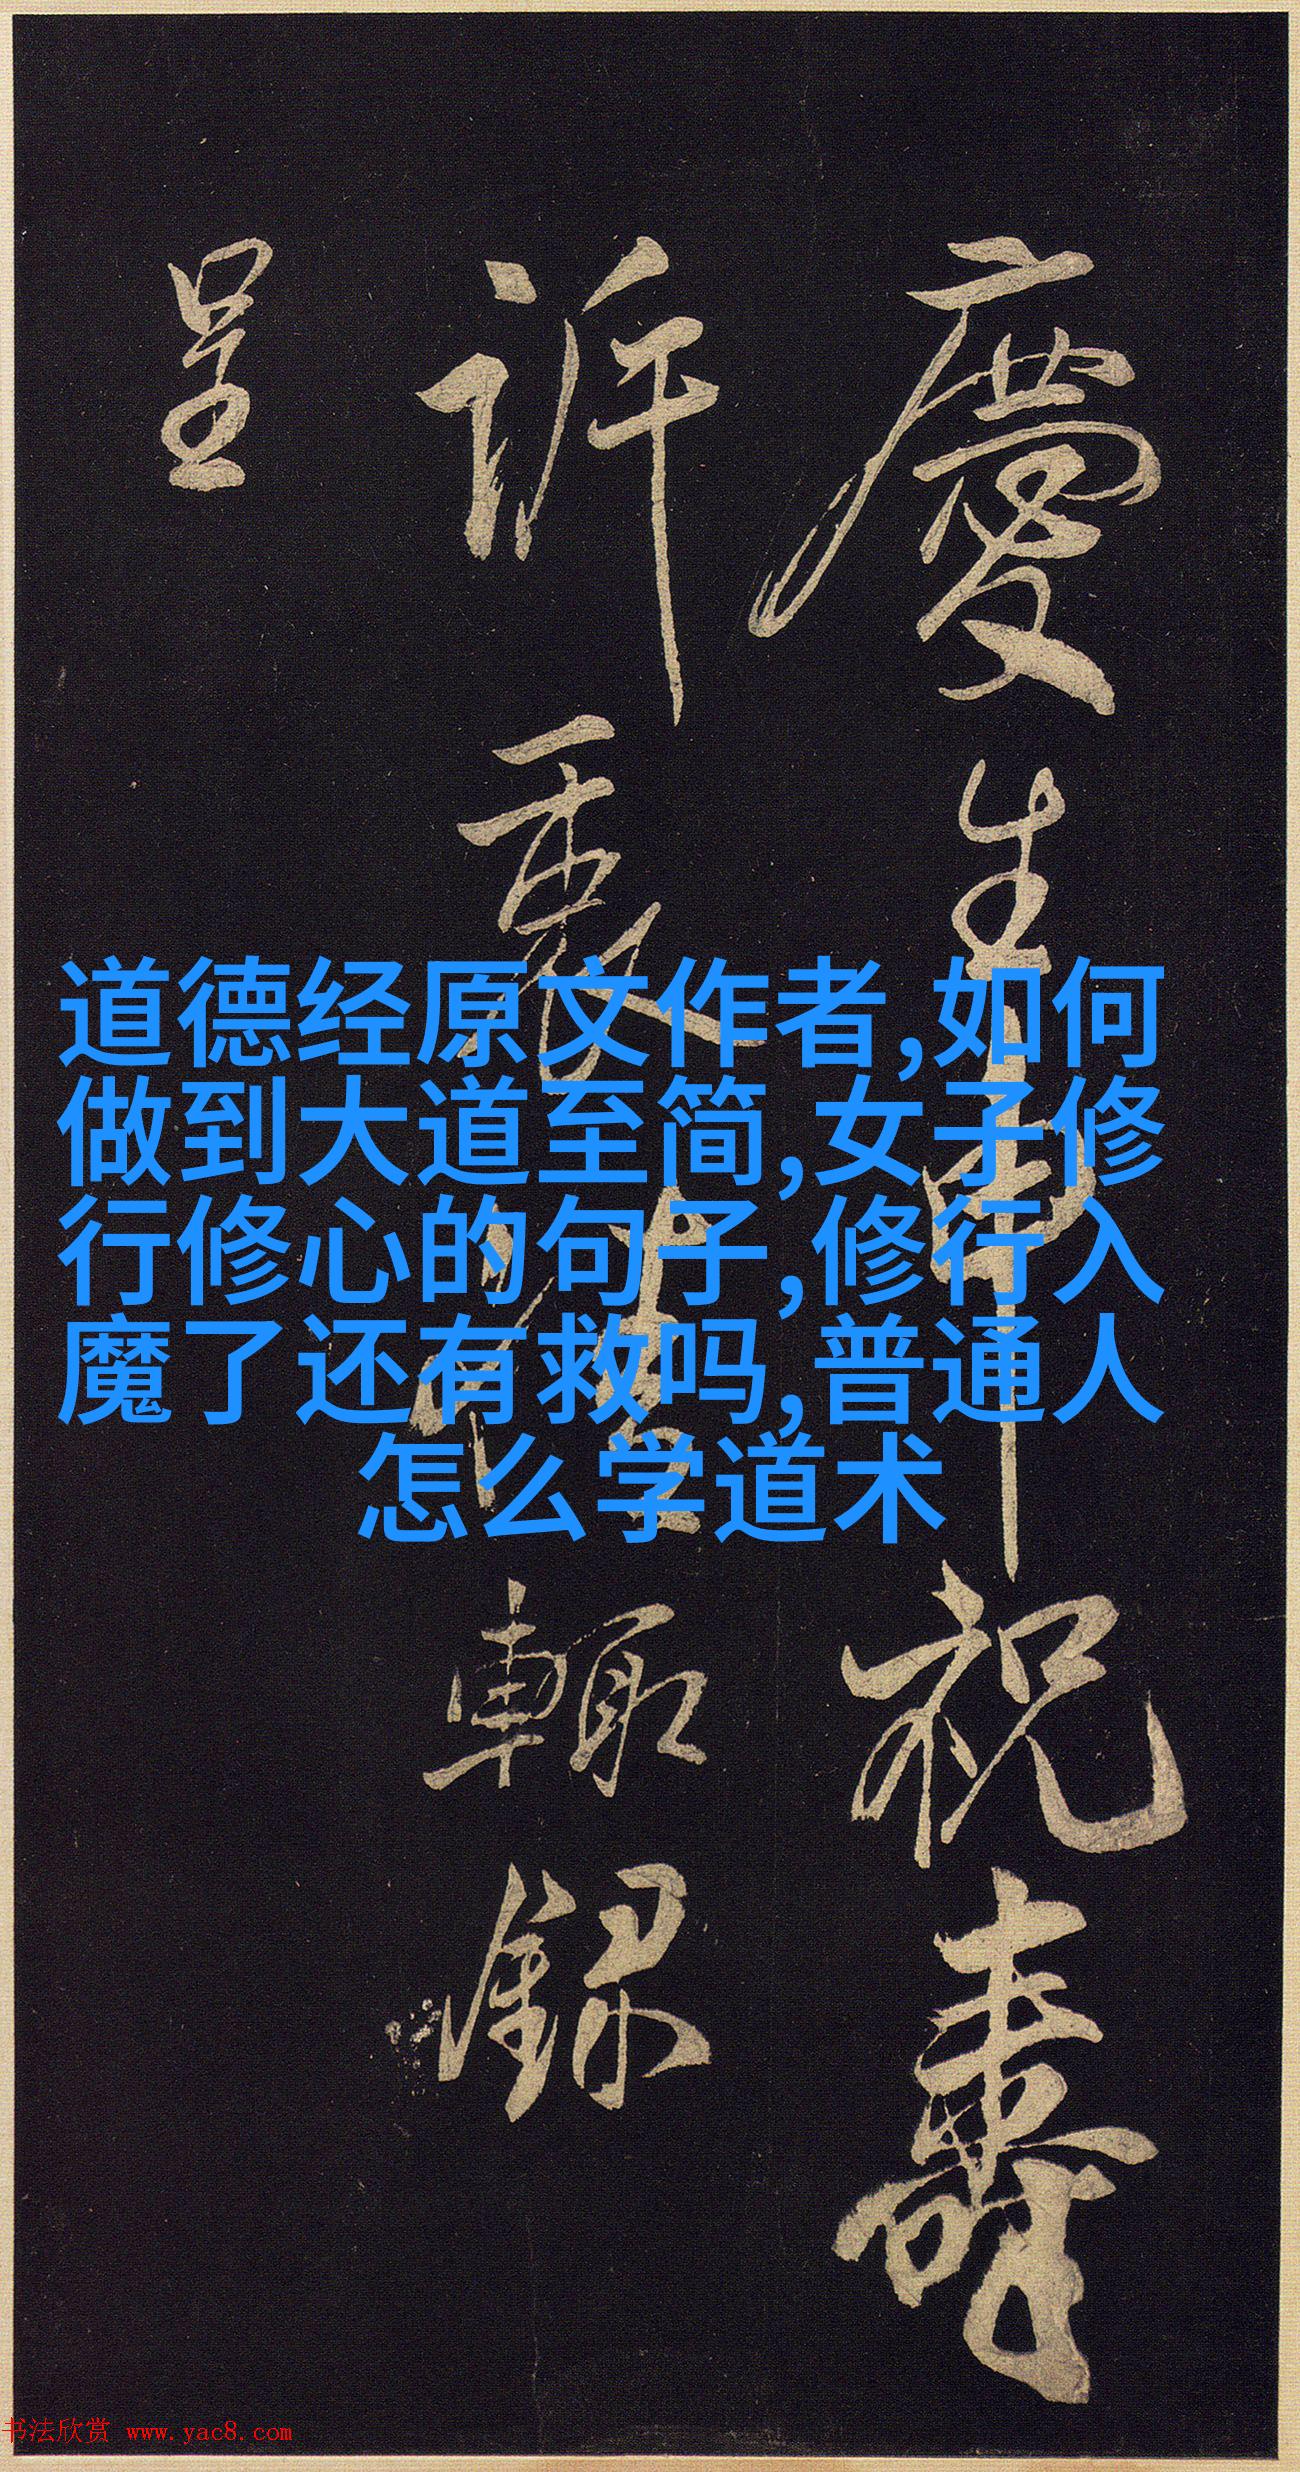 慶生申祝壽
訴衷情輒錄
呈
道德经原文作者,如何
做到大道至简,女子修
行修心的句子,修行入
魔了还有救吗,普通人
怎么学道术
书法欣赏 www.yac8.com